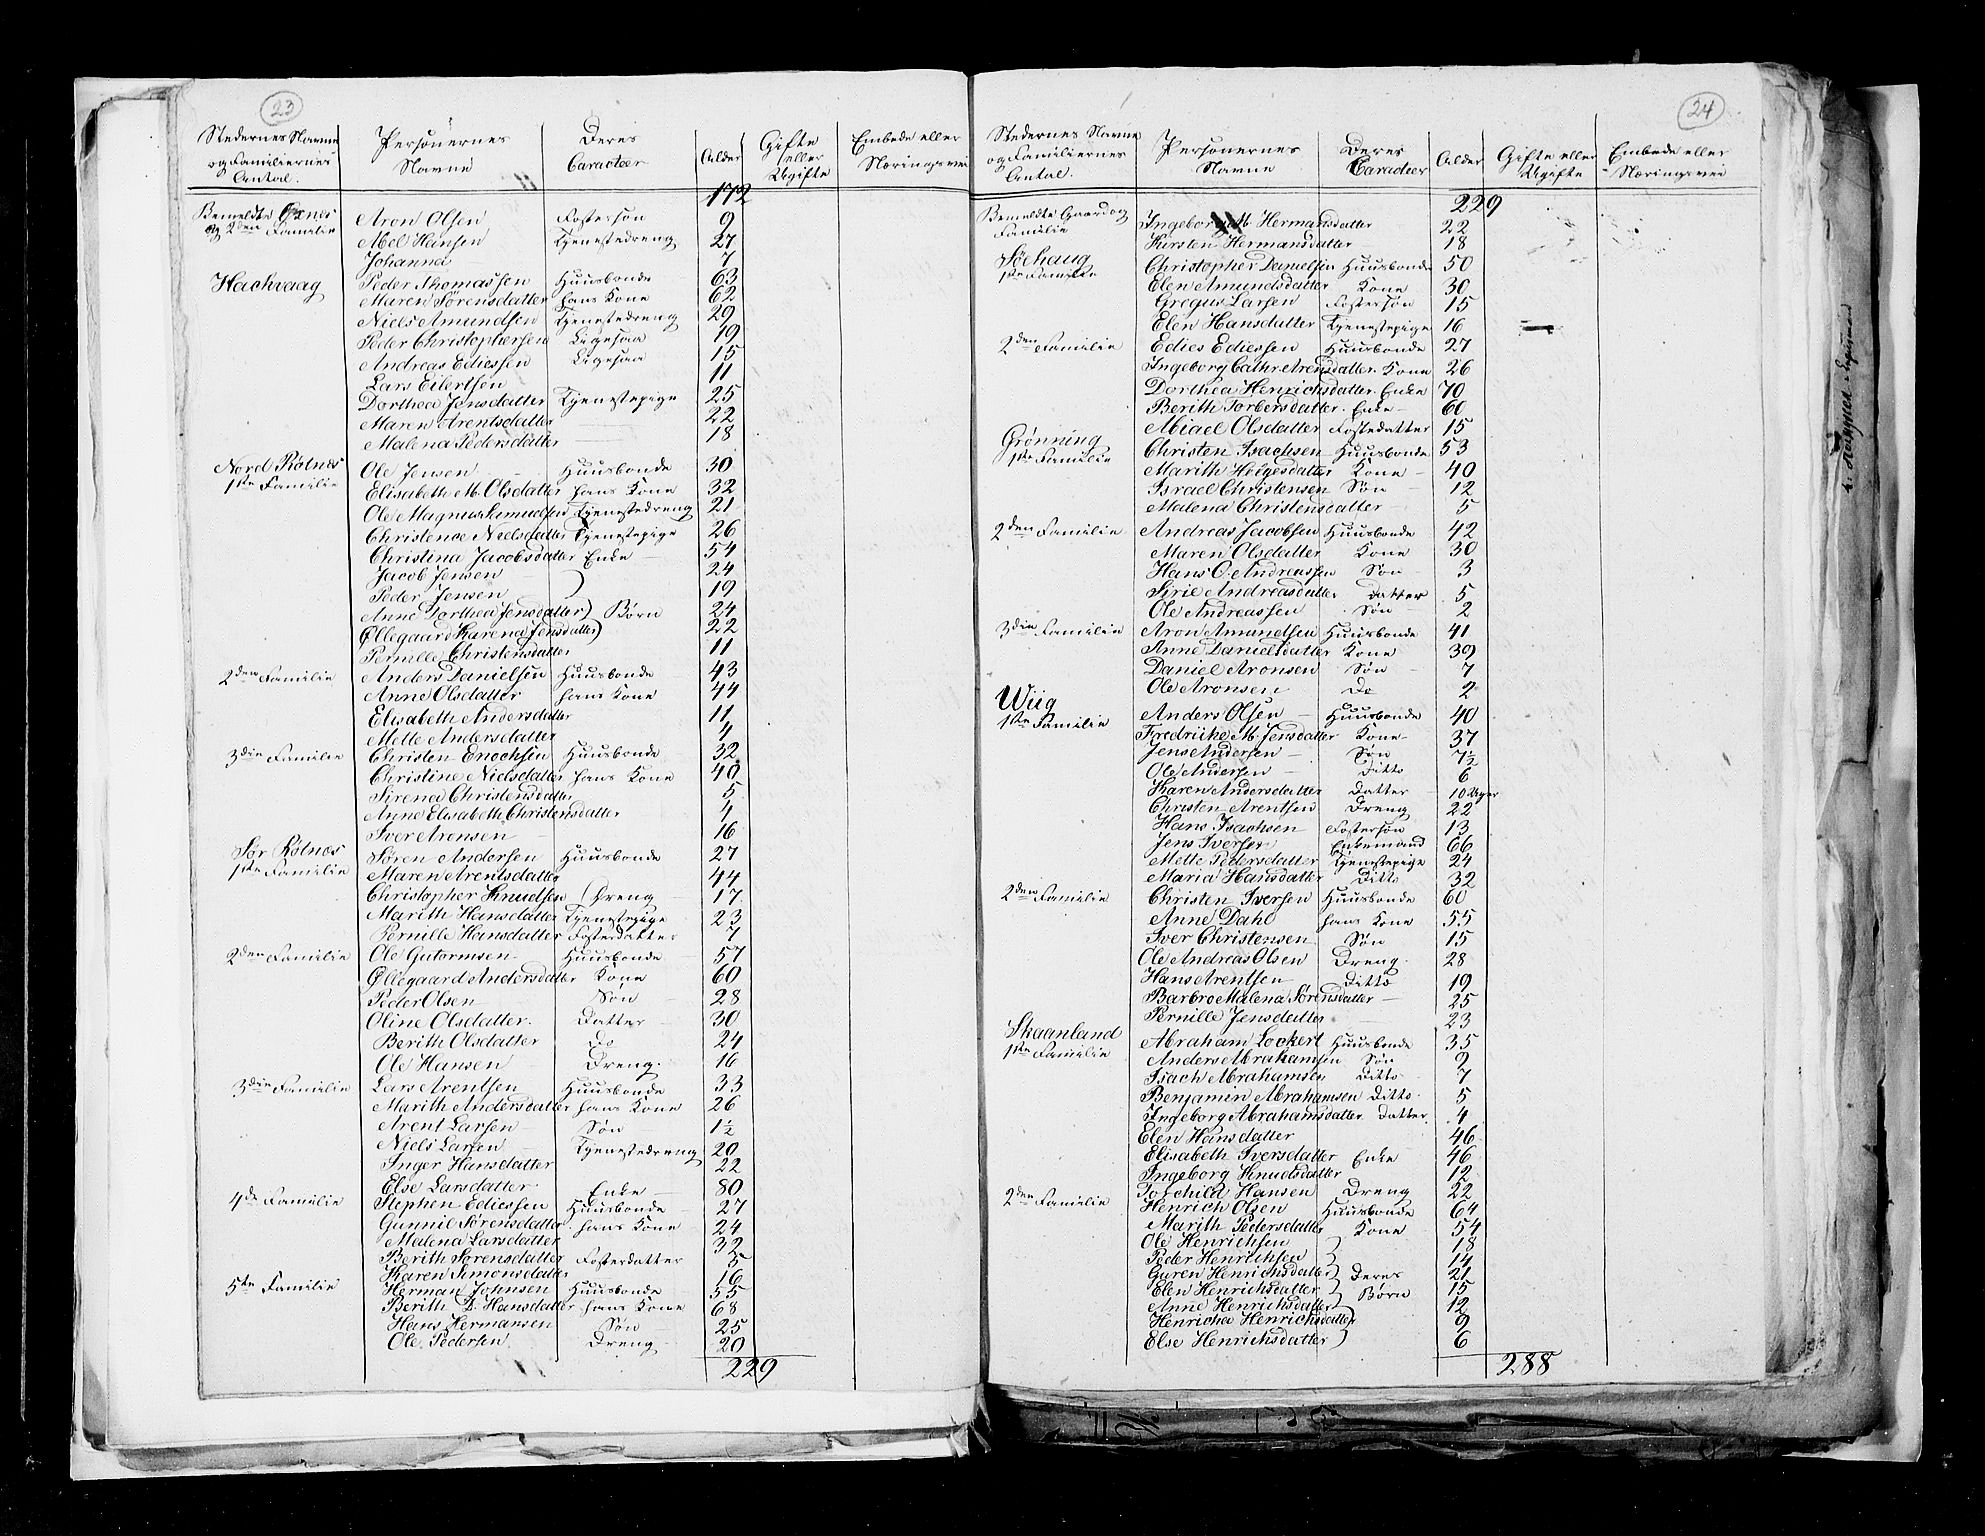 23
Stedernes Navne og Familiernes Antal. Personernes Navne Deres Caracteer Alder Gifte eller Ugifte Embede eller Næringsvei
172
Bemeldte Gxnes Aron Olsen Fostersøn 9
og 2den Familie Abel Hansen Tjenestedreng 27
Johanna 7
Hachvaag Peder Thomassen Huusbonde 63
Maren Sørensdatter hans Kone 62
Niels Amundsen Tjenestedreng 29
Peder Christophersen Ligesaa 19
Andreas Ediessen Ligesaa 15
Lars Eilertsen 11
Dorthea Jensdatter Tjenestepige 25
Maren Arentsdatter 22
Malena Pedersdatter 18
Nord Rølnes Ole Jensen Huusbonde 30
1ste Familie Elisabeth M. Olsdatter hans Kone 32
Ole Magnus Samuelsen Tjenestedreng 21
Christence Nielsdatter Tjenestepige 26
Christina Jacobsdatter Enke 54
Jacob Jensen 24
Peder Jensen 19
Anne Dorthea Jensdatter Børn 24
Øllegaard Karena Jensdatter 22
Pernille Christensdatter 11
2den Familie Anders Danielsen Huusbonde 43
Anne Olsdatter hans Kone 44
Elisabeth Andersdatter 11
Mette Andersdatter 4
3die Familie Christen Enochsen Huusbonde 32
Christine Nielsdatter hans Kone 40
Sirena Christensdatter 5
Anne Elisabeth Christensdatter 4
Iver Arensen 16
Sør Rølnes Søren Andersen Huusbonde 27
1ste Familie Maren Arentsdatter 44
Christopher Knudsen Dreng 17
Marith Hansdatter Tjenestepige 23
Pernille Hansdatter Fosterdatter 7
2den Familie Ole Gutormsen Huusbonde 57
Øllegaard Andersdatter Kone 60
Peder Olsen Søn 28
Oline Olsdatter Datter 30
Berith Olsdatter Do 24
Ole Hansen Dreng. 16
3die Familie Lars Arentsen Huusbonde 33
Marith Andersdatter hans Kone 26
Arent Larsen Søn 1½
Niels Larsen Tjenestedreng 20
Inger Hansdatter 22
Else Larsdatter Enke 80
4de Familie Stephen Ediessen Huusbonde 27
Gunnil Sørensdatter hans Kone 24
Malena Larsdatter 32
Berith Sørensdatter Fosterdatter 5
Karen Simonsdatter 16
5te Familie Herman Johnsen Huusbonde 55
Berith D. Hansdatter hans Kone 68
Hans Hermansen Søn 25
Ole Pedersen Dreng 20
229
24
Stedernes Navne og Familiernes Antal. Personernes Navne Deres Caracteer Alder Gifte eller Ugifte Embede eller Næringsvei
229
Bemeldte Gaard og Ingeborg M Hermansdatter 22
Familie Kirsten Hermansdatter 18
Søehaug Christopher Danielsen Huusbonde 50
1ste Familie Elen Amundsdatter Kone 30
Gregus Larsen Fostersøn 15
Elen Hansdatter Tjenestepige 16
2den Familie Edies Ediessen Huusbonde 27
Ingeborg Cathr Arensdatter Kone 26
Dorthea Henrichsdatter Enke 70
Berith Torbersdatter Enke 60
Abiael Olsdatter Fostedatter 15
Grønning Christen Isachsen Huusbonde 53
1ste Familie Marith Helgesdatter Kone 40
Israel Christensen Søn 12
Malena Christensdatter 5
2den Familie Andreas Jacobsen Huusbonde 42
Maren Olsdatter Kone 30
Hans O. Andreassen Søn 3
Sirie Andreasdatter Datter 5
Ole Andreassen Søn 2
3die Familie Aron Amundsen Huusbonde 41
Anne Danielsdatter Kone 39
Daniel Aronsen Søn 7
Ole Aronsen Do 2
Wiig Anders Olsen Huusbonde 40
1ste Familie Fredricke M. Jensdatter Kone 37
Jens Andersen Søn 7½
Ole Andersen Ditto 6
Karen Andersdatter Datter 10 Uger
Christen Arentsen Dreng 22
Hans Isachsen Fostersøn 13
Jens Iversen Enkemand 66
Mette Pedersdatter Tjenestepige 24
Maria Hansdatter Ditto 32
2den Familie Christen Iversen Huusbonde 60
Anne Dahl hans Kone 55
Iver Christensen Søn 15
Ole Andreas Olsen Dreng. 28
Hans Arentsen Ditto 19
Barbro Malena Sørensdatter 25
Pernille Jensdatter 23
Skaanland Abraham Lockert Huusbonde 35
1ste Familie Anders Abrahamsen Søn 9
Isach Abrahamsen Ditto 7
Benjamin Abrahamsen Ditto. 5
Ingeborg Abrahamsdatter Datter. 4
Elen Hansdatter 46
Elisabeth Iversdatter Enke 46
Ingeborg Knudsdatter 12
Torchild Hansen Dreng 22
2den Familie Henrich Olsen Huusbonde 64
Marith Pedersdatter Kone 54
Ole Henrichsen 18
Peder Henrichsen 14
Guren Henrichsdatter Deres 21
Elen Henrichsdatter Børn 15
Anne Henrichsdatter 12
Henricha Henrichsdatter 9
Else Henrichsdatter 6
288